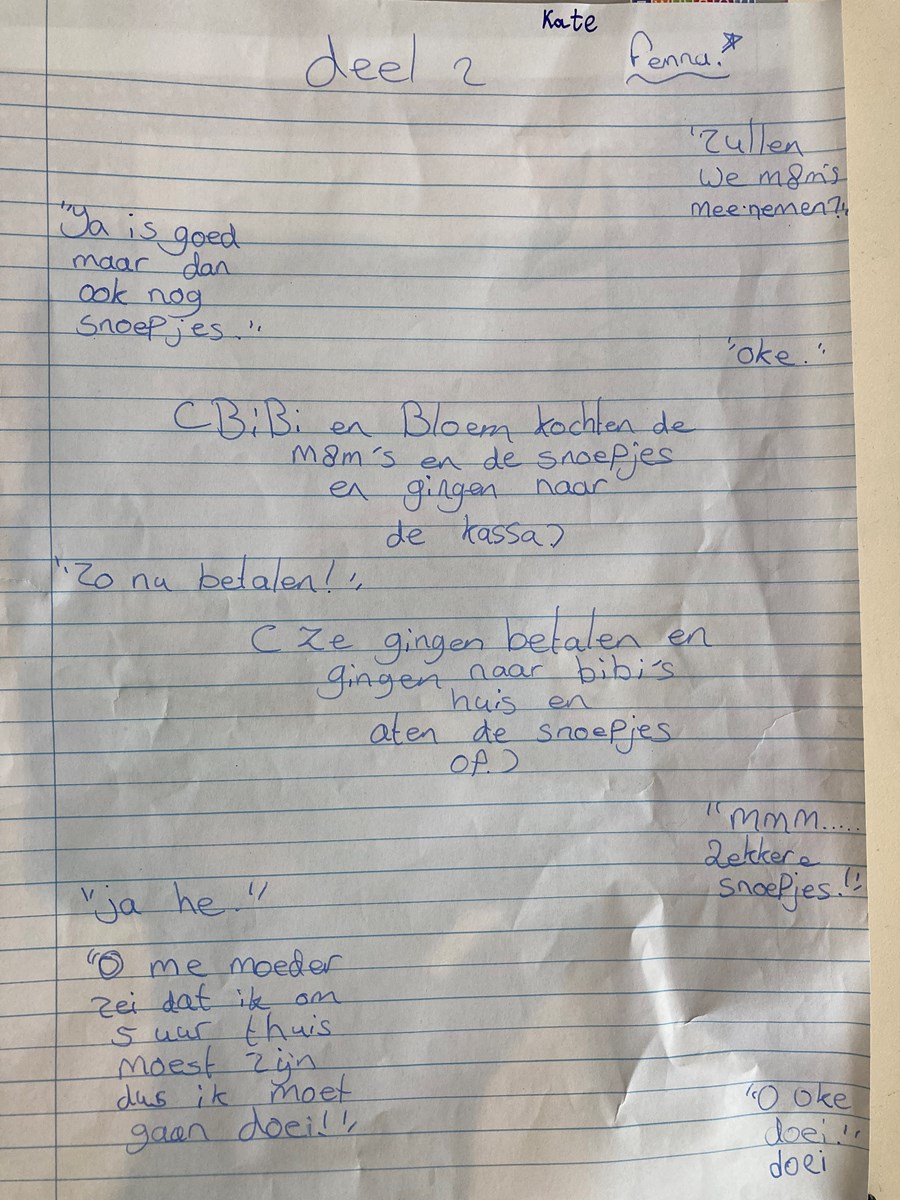 Kate
deel 2
Fenna.
"Zullen
we m&m's
mee nemen?"
"Ja is goed
maar dan
ook nog
snoepjes."
"oke."
(BiBi en Bloem kochten de
m&m's en de snoepjes
en gingen naar
de kassa)
"Zo nu betalen!"
(Ze gingen betalen en
gingen naar bibi's
huis en
aten de snoepjes
op.)
"mmm.....
Lekkere
snoepjes."
"ja he."
"O me moeder
zei dat ik om
5 uur thuis
moest zijn
dus ik moet
gaan doei!"
"O oke
doei."
doei